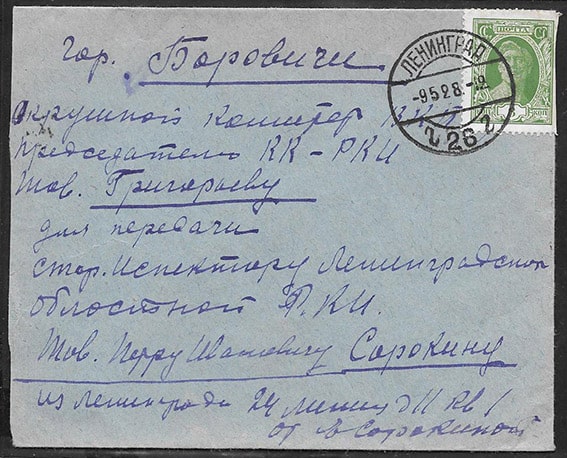 гор. Боровичи
Окружной Комитет ВКП
председателю КК-РКИ
Тов. Григорьеву
для передачи
стар. Испектору Ленинградской
областной РКИ.
Тов. Петру Ивановичу Сорокину
из Ленинграда 24 линия д 11 кв 1
от Сорокиной
ЛЕНИНГРАД
-9528.-18
26
ПОЧТА